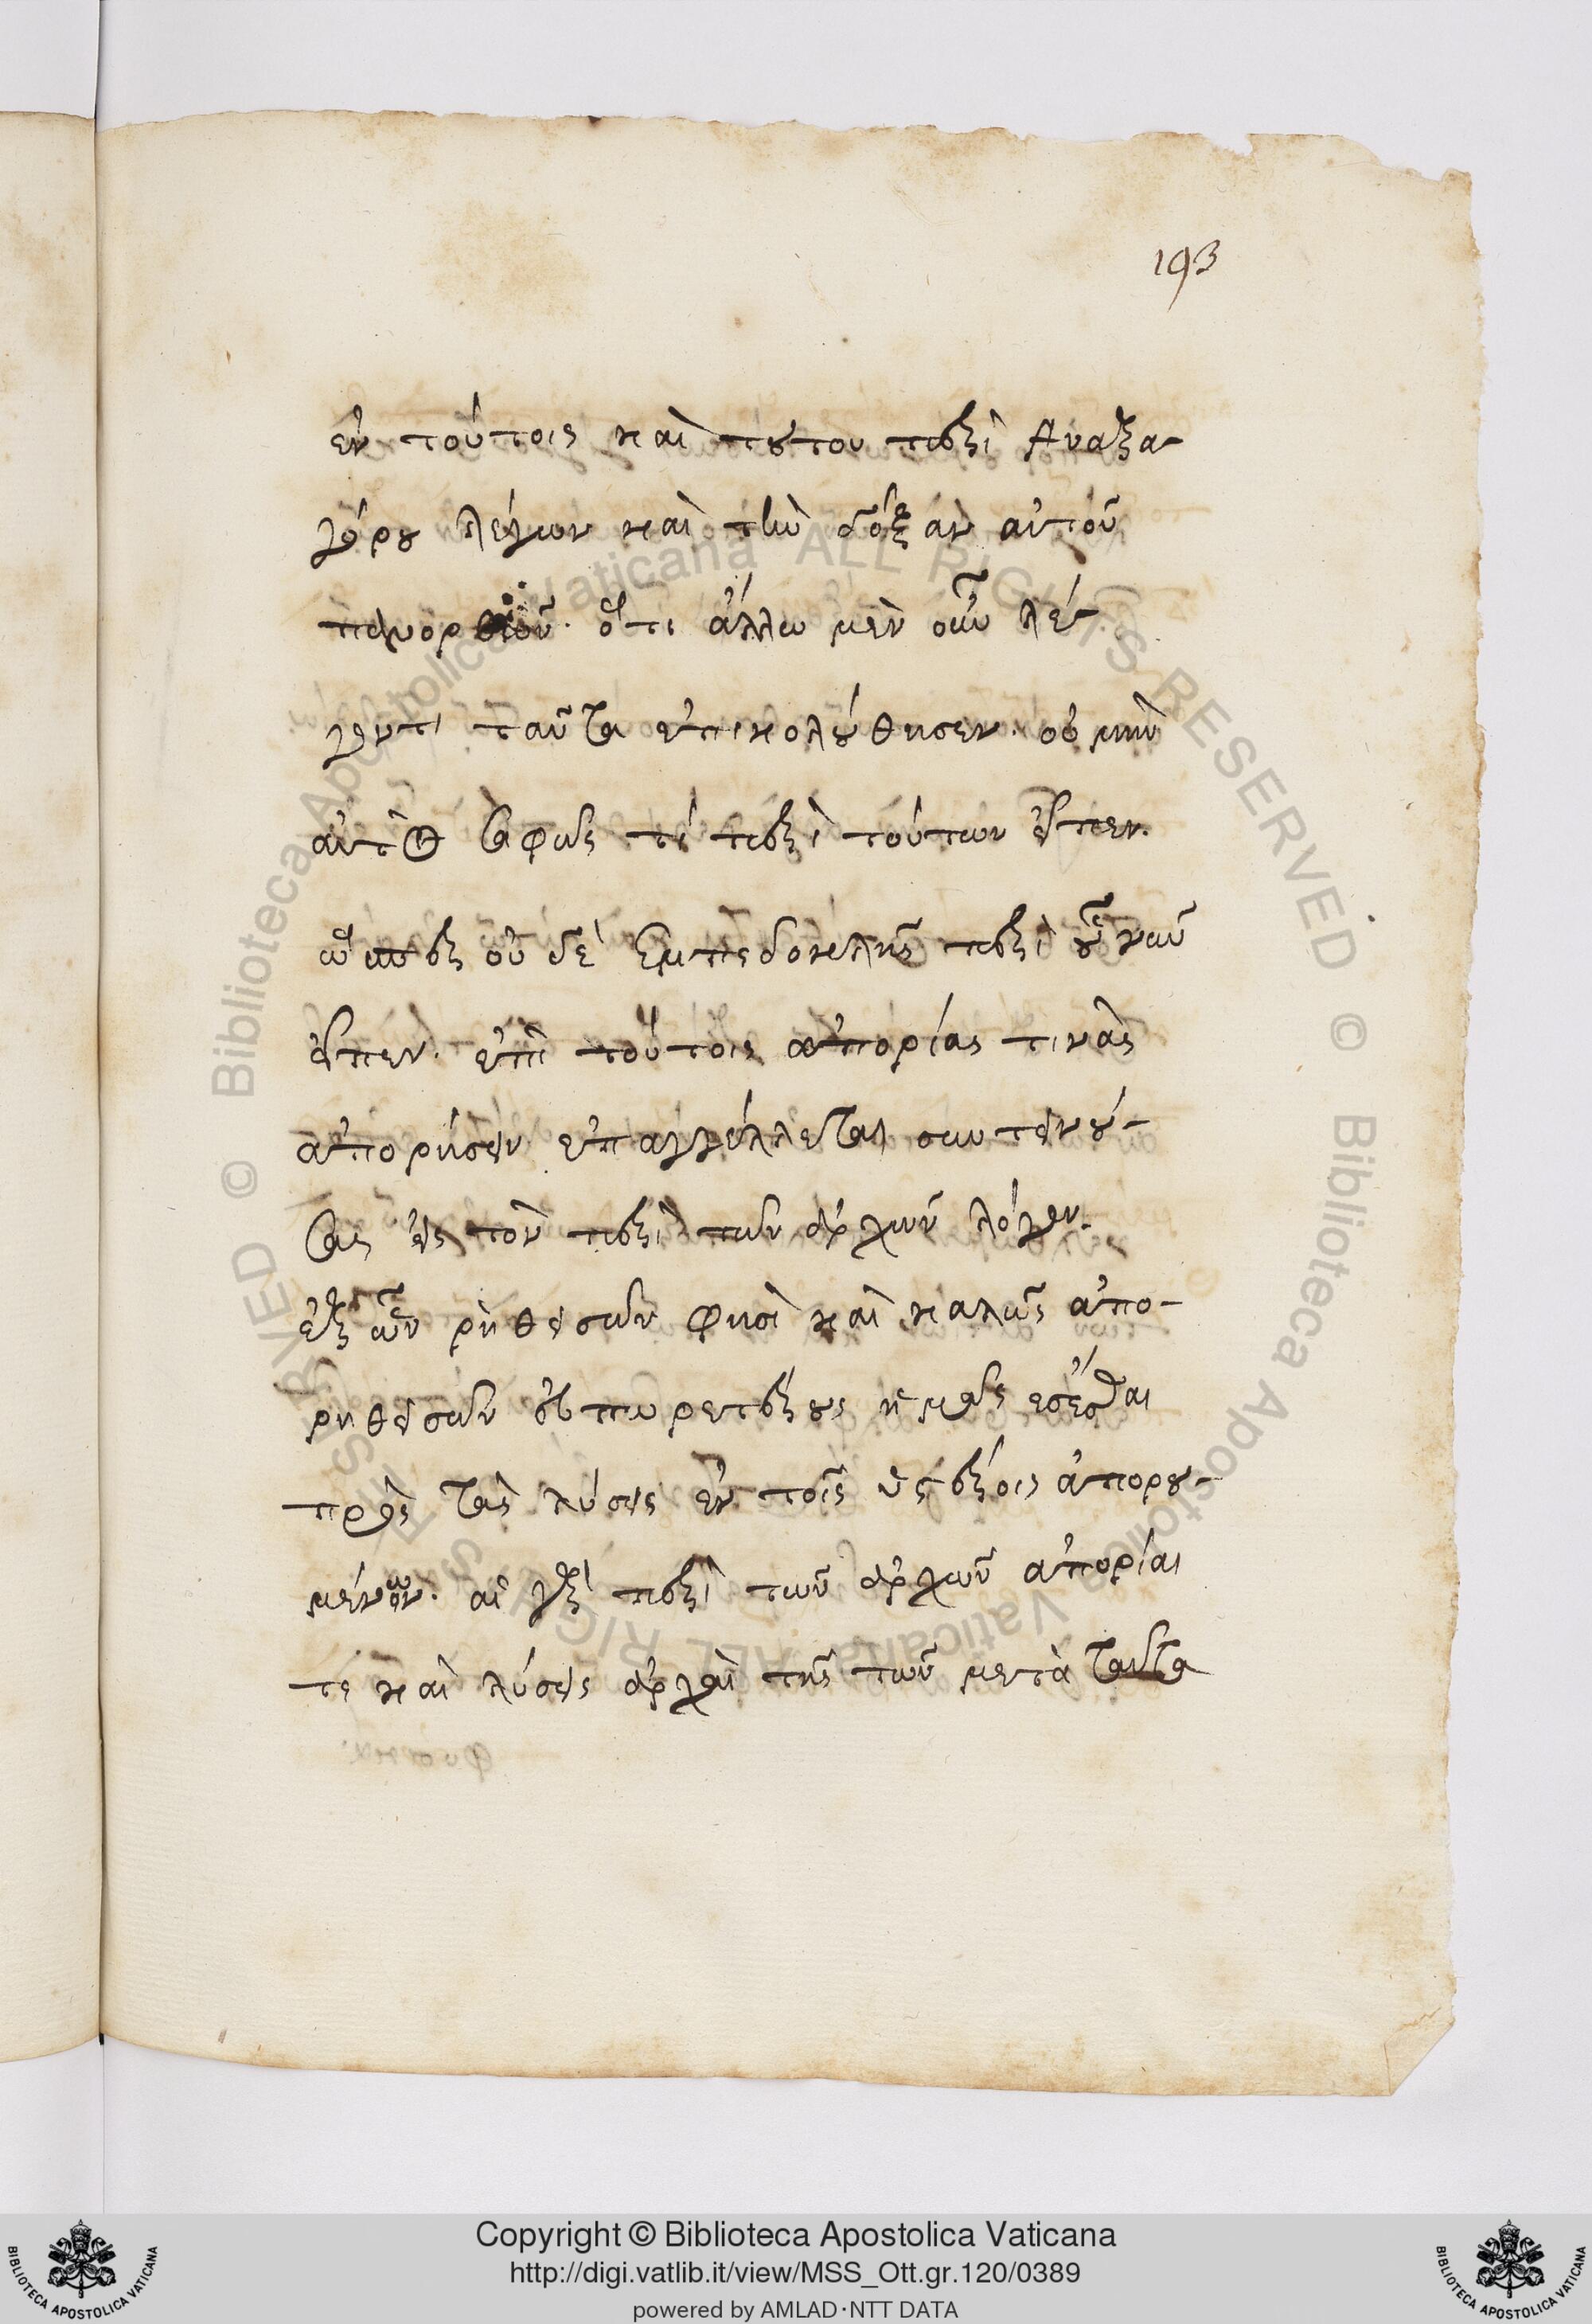 193
ἐν τούτοις καὶ τούτου περὶ Ἀναξα-
γόρου λέγων καὶ τὴν δόξαν αὐτοῦ
ὅτι ἄλλω μὲν οὖν λέ-
γοντι ταῦτα ἐπηκολούθησεν. οὐ μὴν
αὐτὸς σαφῶς τί περὶ τούτων εἶπεν.
ὥσπερ οὐδὲ Ἐμπεδοκλῆς περὶ οὗ νῦν
εἶπεν. ἐπὶ τούτοις ἀπορίας τινὰς
ἀπορήσειν ἐπαγγέλλεται συντεινού-
σας εἰς τὸν περὶ τῶν ἀρχῶν λόγον.
ἐξ ὧν ῥηθεισῶν φησὶ καὶ καλῶς ἀπο-
ρηθεισῶν εὐπορωτέρους ἡμᾶς ἔσεσθαι
πρὸς τὰς λύσεις ἐν τοῖς ὑστέροις ἀπορου-
μένων. αἱ γὰρ περὶ τῶν ἀρχῶν ἀπορίαι
τε καὶ λύσεις ἀρχαὶ τῆς τῶν μετὰ ταῦτα
Copyright © Biblioteca Apostolica Vaticana
http://digi.vatlib.it/view/MSS_Ott.gr.120/0389
powered by AMLAD·NTT DATA
BIBLIOTECA APOSTOLICA VATICANA
BIBLIOTECA APOSTOLICA VATICANA
© Biblioteca Apostolica Vaticana ALL RIGHTS RESERVED
© Biblioteca Apostolica Vaticana ALL RIGHTS RESERVED